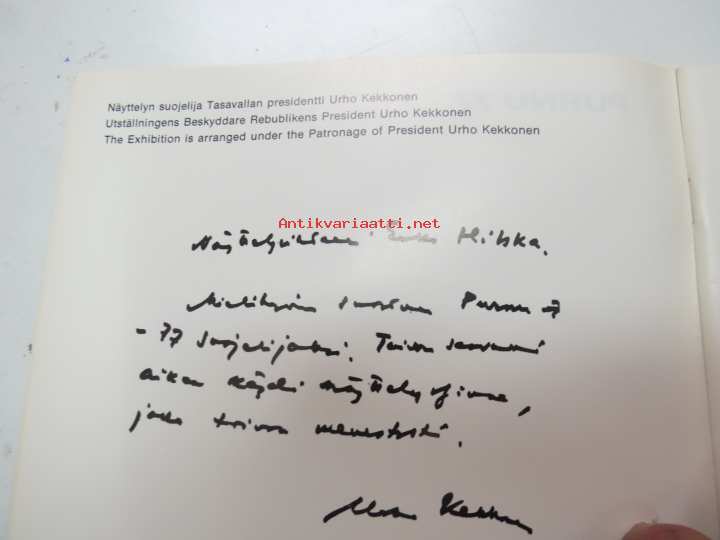 Näyttelyn suojelija Tasavallan presidentti Urho Kekkonen
Utställningens Beskyddare Rebublikens President Urho Kekkonen
The Exhibition is arranged under the Patronage of President Urho Kekkonen
Antikvariaatti.net
Mielihyvin suostun Purnu
-77 suojelijaksi. Toivon saavani
aikaa käydä näyttelyssänne,
jolle toivon menestystä.
Urho Kekkonen